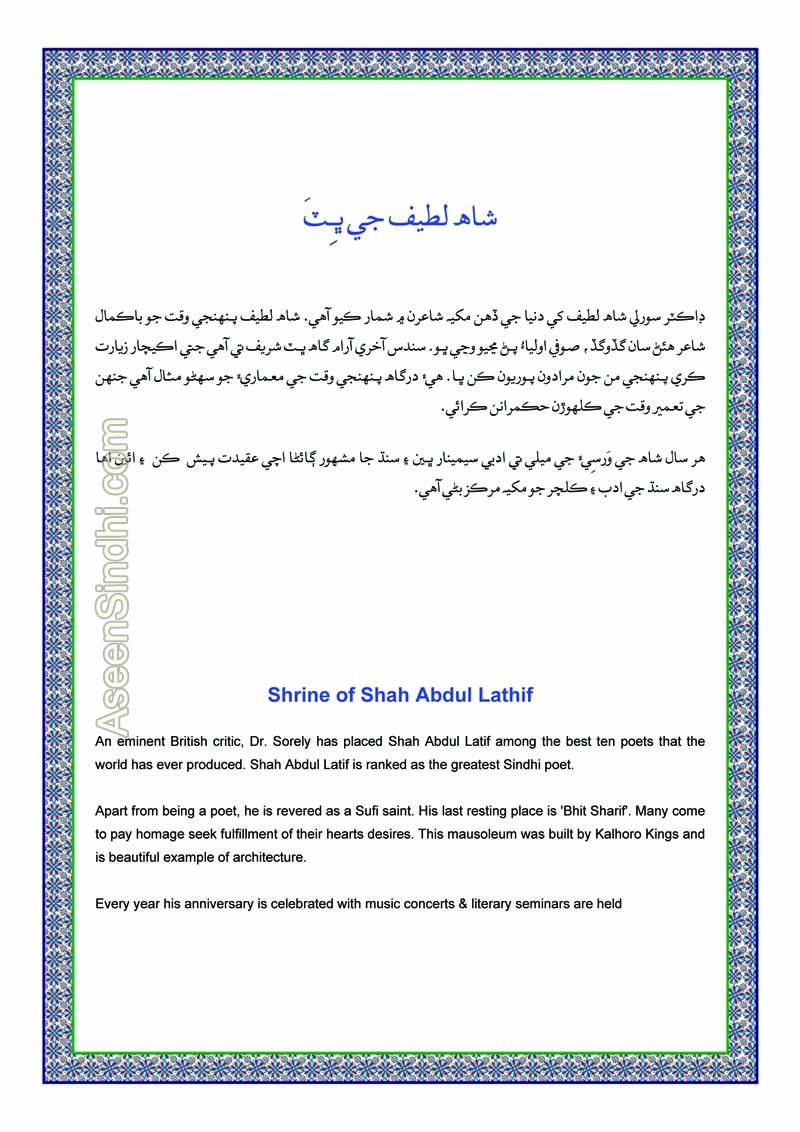 شاهہ لطيف جي ڀِٽَ
ڊاڪٽر سورلي شاهہ لطيف کي دنيا جي ڏهن مکيہ شاعرن ۾ شمار ڪيو آهي. شاهہ لطيف پنهنجي وقت جو باڪمال
شاعر هئڻ سان گڏوگڏ ، صوفي اولياءُ پڻ مڃيو وڃي ٿو. سندس آخري آرام گاهہ ڀٽ شريف تي آهي جتي اڪيچار زيارت
ڪري پنهنجي من جون مرادون پوريون ڪن ٿا. هيءُ درگاهہ پنهنجي وقت جي معماريءَ جو سهڻو مثال آهي جنهن
جي تعمير وقت جي ڪلهوڙن حڪمرانن ڪرائي.
هر سال شاهہ جي وَرسيِءَ جي ميلي تي ادبي سيمينار ٿين ۽ سنڌ جا مشهور ڳائڻا اچي عقيدت پيش ڪن ۽ ائين اها
درگاهہ سنڌ جي ادب ۽ ڪلچر جو مکيہ مرڪز بڻي آهي.
AseenSindhi.com
Shrine of Shah Abdul Lathif
An eminent British critic, Dr. Sorely has placed Shah Abdul Latif among the best ten poets that the
world has ever produced. Shah Abdul Latif is ranked as the greatest Sindhi poet.
Apart from being a poet, he is revered as a Sufi saint. His last resting place is 'Bhit Sharif'. Many come
to pay homage seek fulfillment of their hearts desires. This mausoleum was built by Kalhoro Kings and
is beautiful example of architecture.
Every year his anniversary is celebrated with music concerts & literary seminars are held